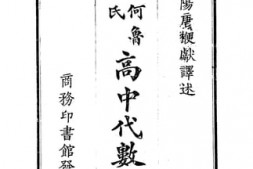 陽唐楩獻譯述
何魯氏
高中代數
商務印書館發